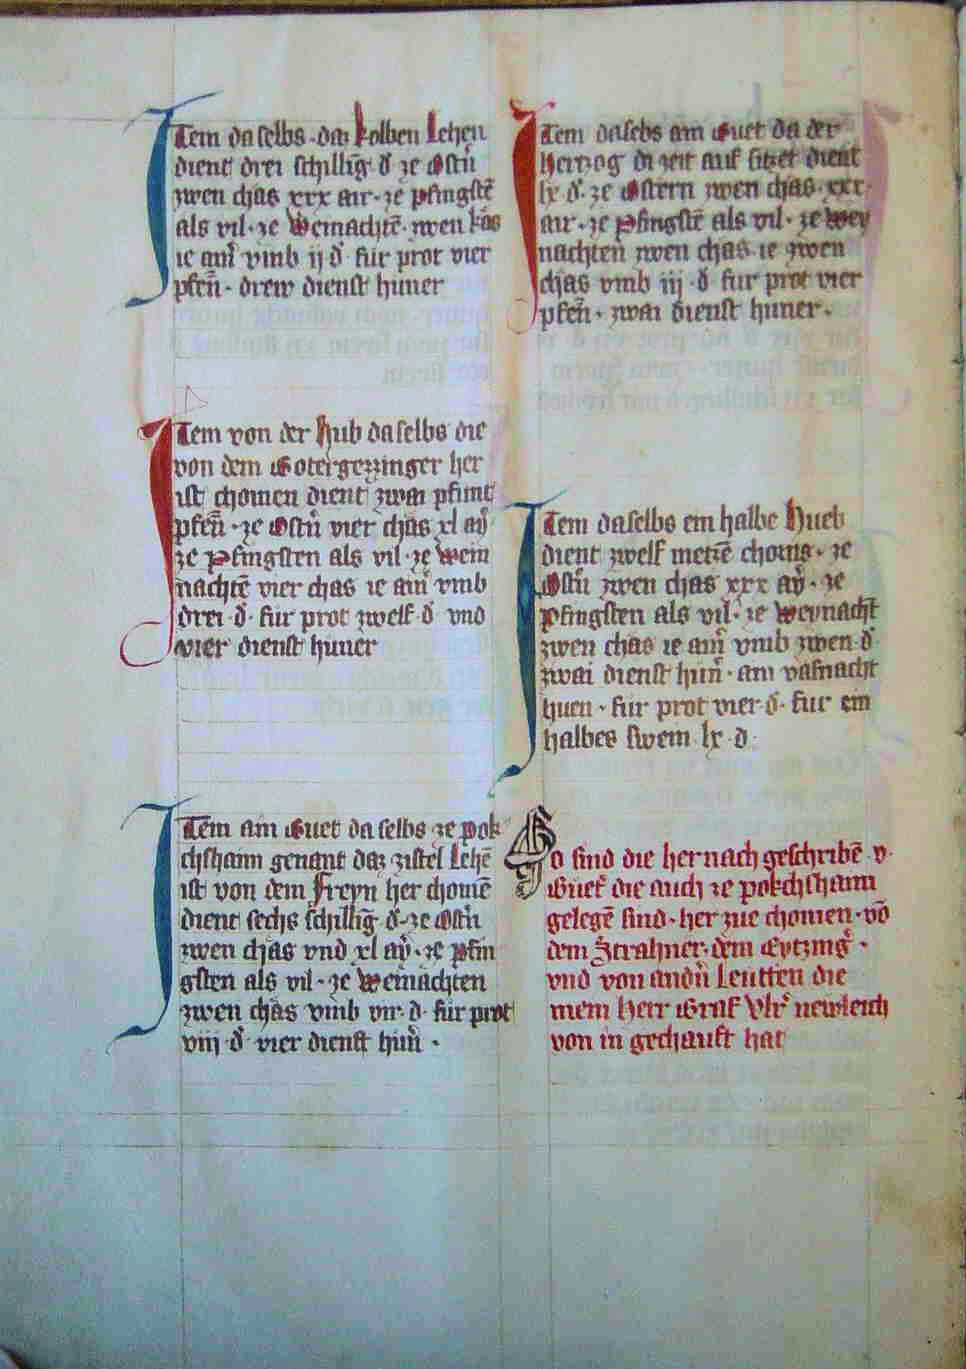 Item daselbs daz kolben Lehen
dient drei schillinḡ d̄ ze Ostn̄
zwen chas xxx air · ze pfingstē
als vil · ze Weinachtē · zwen käs
ie am̄ vmb ij d̄ · für prot vier
pfen̄ · drew dienst huner
Item von der Hub daselbs die
von dem Gotergezzinger her
ist chomen dient zwai pfunt
pfen̄ · ze Ostn̄ vier chäs xl aÿ
ze Pfingsten als vil · ze wein
nachtē vier chas ie ain̄ vmb
drei · d̄ · für prot zwelf · d̄ · vnd
vier dienst huner
Item ain Guet daselbs ze pok
chshaim genant daz zistel Lehē
ist von dem Freyn her chomē
dient sechs schilliḡ · d̄ · ze Ostn̄
zwen chas vnd xl aÿ · ze pfin
gsten als vil · ze Weinachten
zwen chäs vmb vir · d̄ · für prot
viij · d̄ · vier dienst hun̄ ·
Item dasebs ain Guet da der
Hertzog di zeit auf sitzet dient
lx · d̄ · ze Ostern zwen chäs · xxx ·
air · ze Pfingstē als vil · ze Wey
nachten zwen chas · ie zwen
chas vmb iij · d̄ für prot vier
pfen̄ · zwai dienst huner ·
Item daselbs ein halbe Hueb
dient zwelf metzē chorns · ze
Ostn̄ zwen chäs xxx aÿ · ze
Pfingsten als vil · ze Weynacht̄
zwen chäs ie ain̄ vmb zwen · d̄
zwai dienst hun̄ · ain vasnacht
huen · für prot vier · d̄ · für ein
halbes swein · lx · d ·
So sind die hernach geschribē · v ·
Guet̄ die auch ze pokchshaim
gelegē sind · her zue chomen · vō
dem Strahner · dem Eytzinḡ ·
vnd von andn̄ Leutten die
mein Herr Graf Vlr̄ newleich
von in gechauft hat